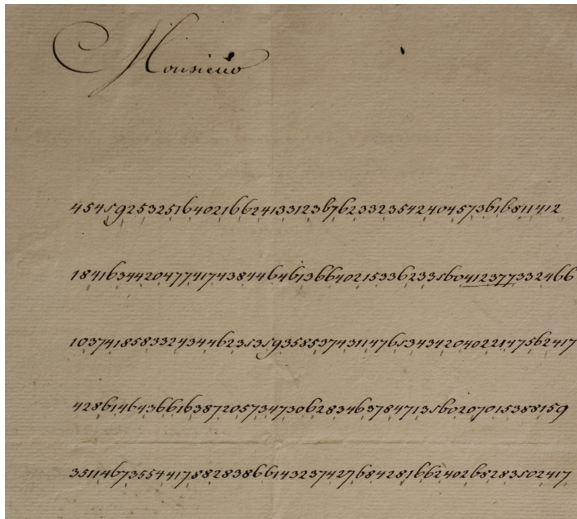 Monsieur
4545925325164021662413312367623323542404573616811412
18416344204774174384464613664021533623356041237733246 6
10374185833243446235359358537431147653434204022147562417
42861464366163872057347306283463784713560207015388159
3511467355441788283866143237427684281662402682835024 17